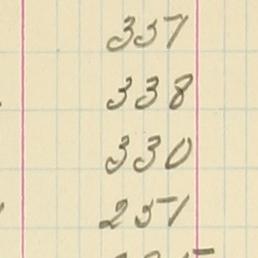 357
338
330
251